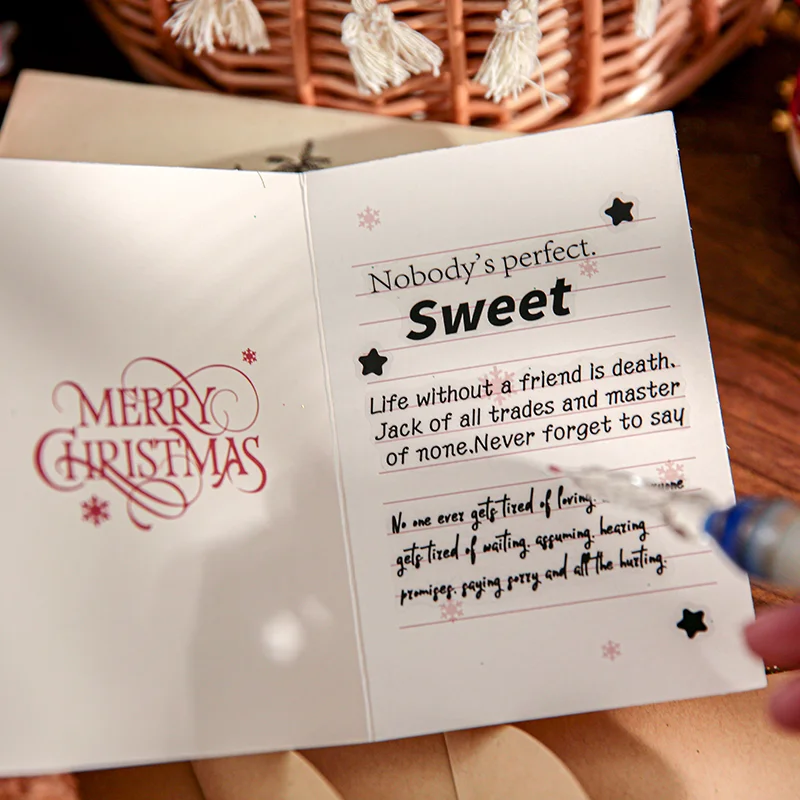 MERRY
CHRISTMAS
Nobody's perfect.
Sweet
Life without a friend is death.
Jack of all trades and master
of none.Never forget to say
No one ever gets tired of loving.
gets tired of waiting. assuming. hearing
promises. saying sorry and all the hurting.